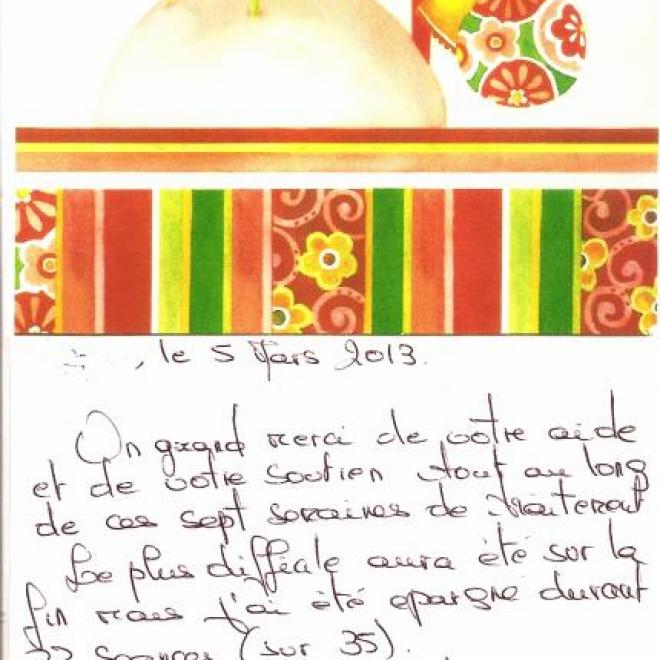 , le 5 Mars 2013.
Un grand merci de votre aide
et de votre soutien tout au long
de ces sept semaines de traitement
Le plus difficile aura été sur la
fin mais j'ai été epargné durant
séances (sur 35).